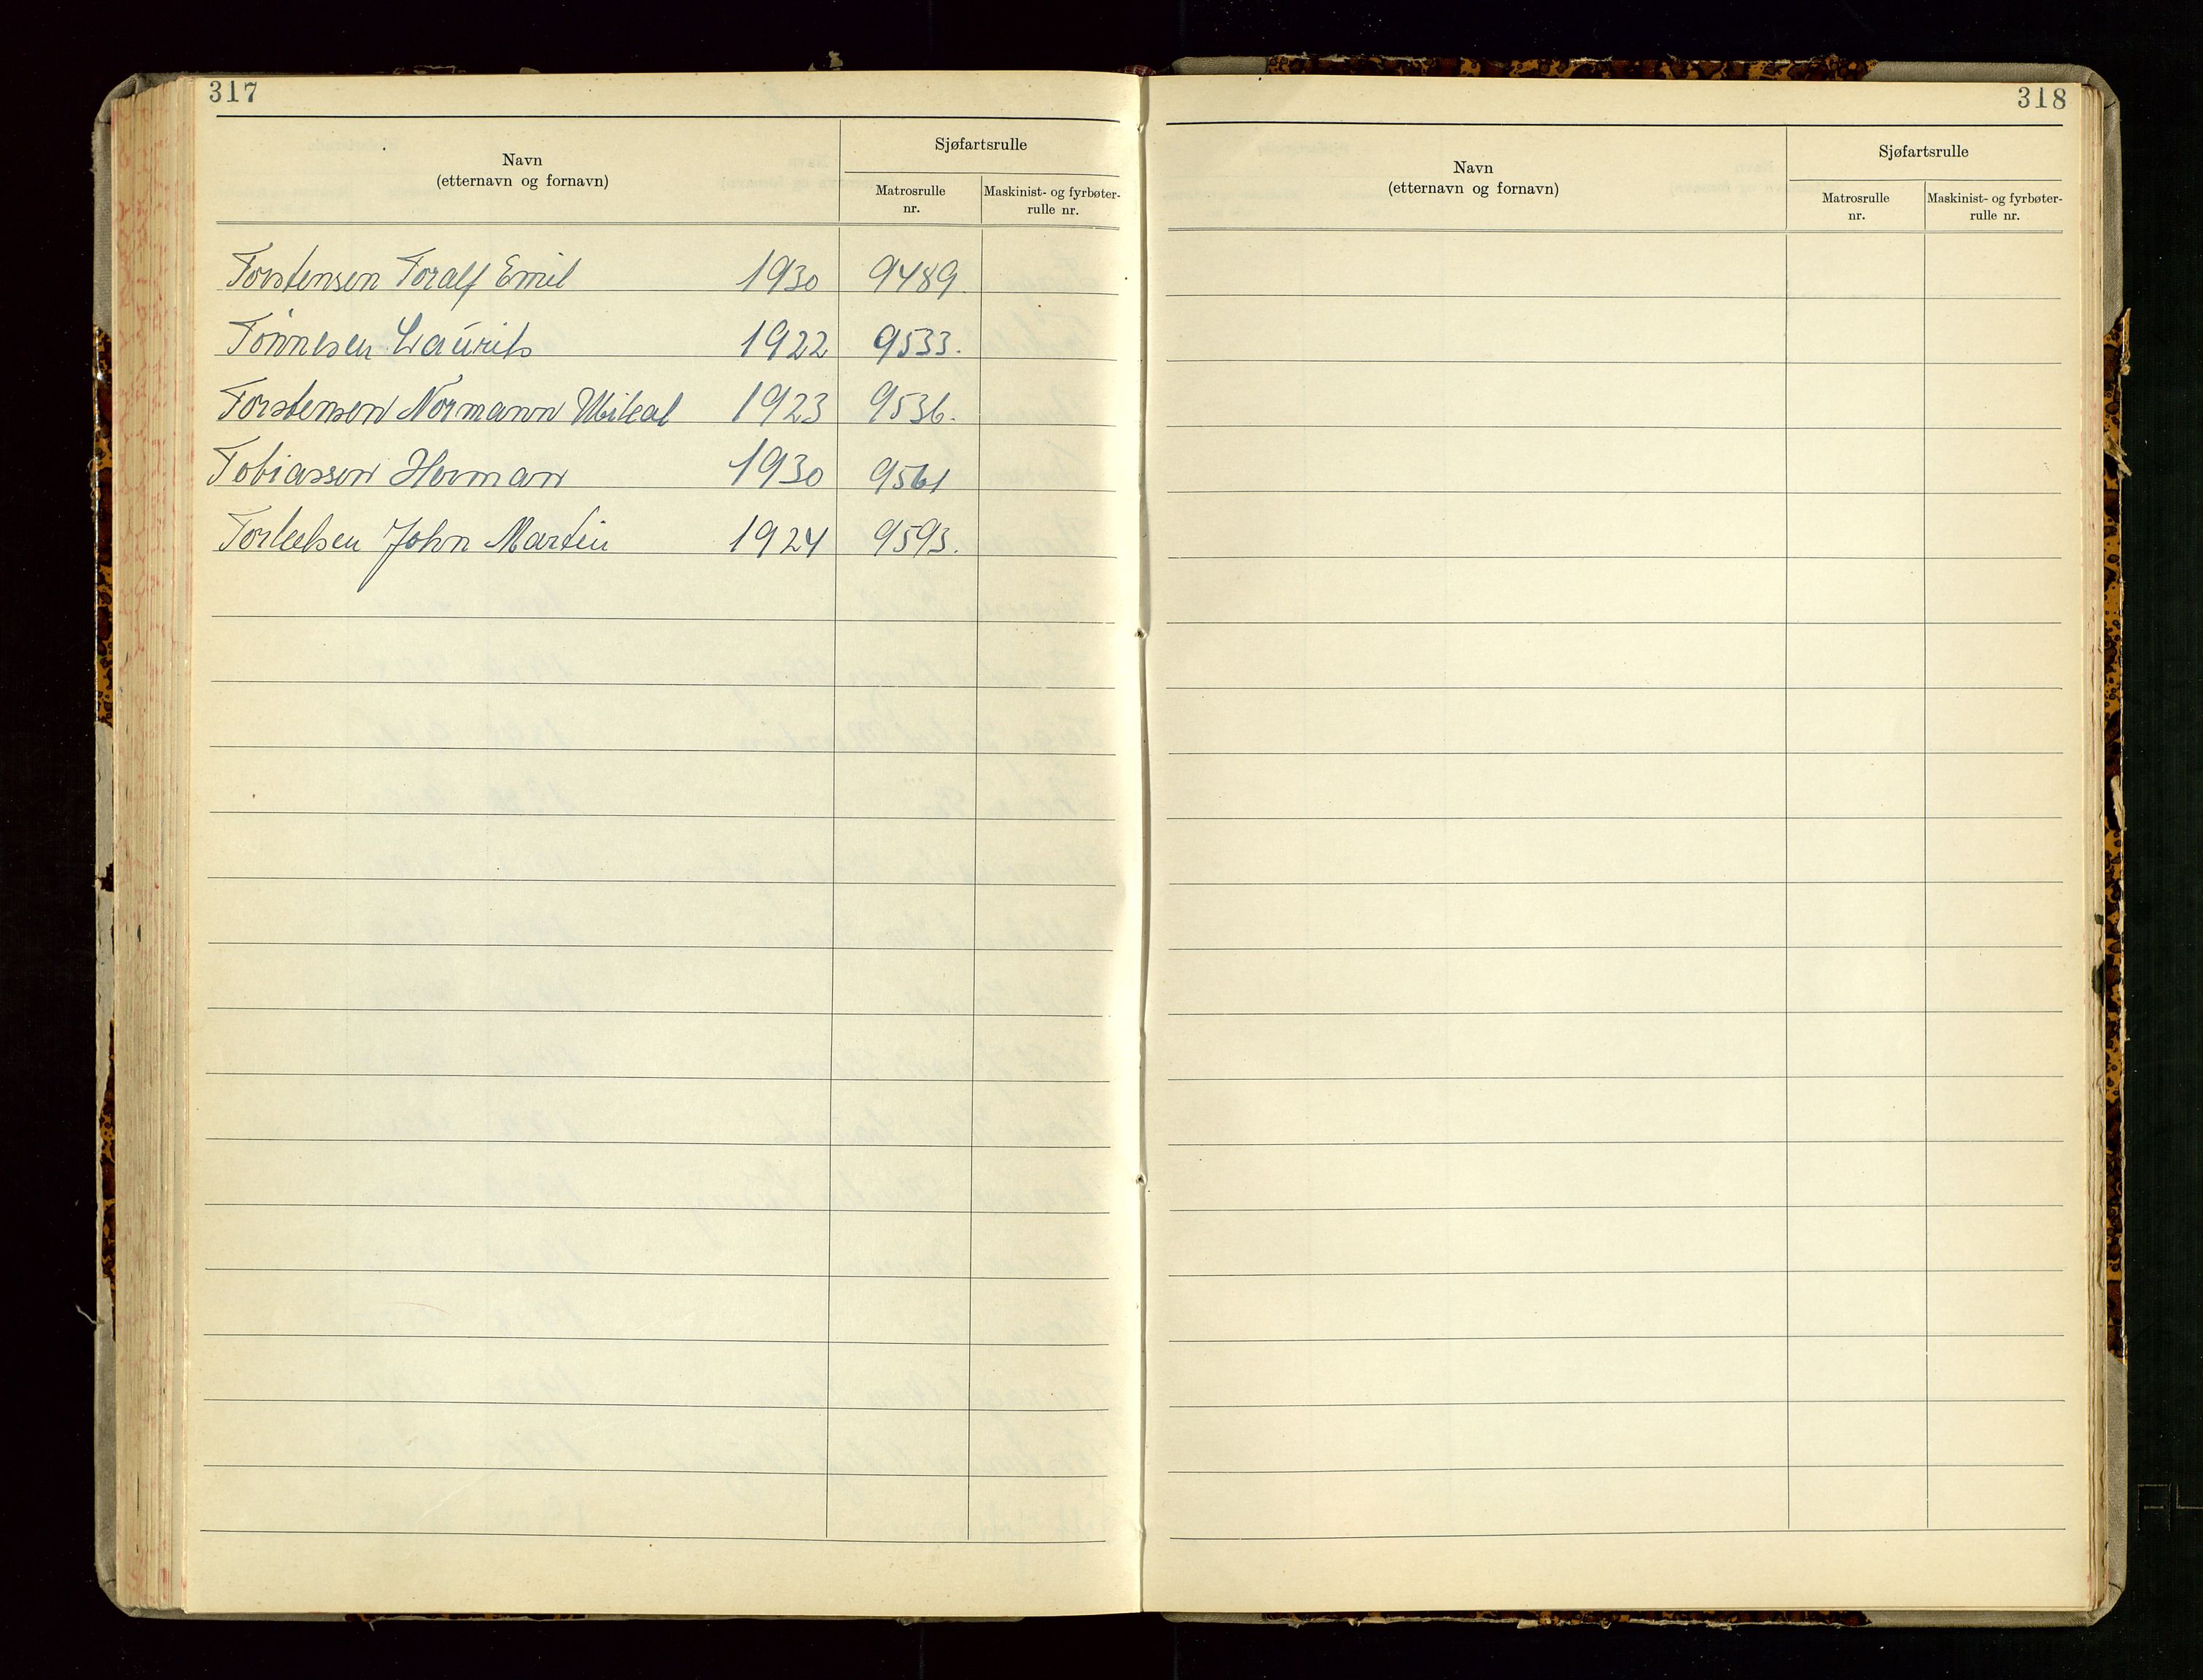 317
Navn
(etternavn og fornavn)
Sjøfartsrulle
Matrosrulle
nr.
Maskinist- og fyrbøter-
rulle nr.
Torstensen Toralf Emil 1930 9489.
Tønnesen Laurits 1922 9533.
Torstensen Normann 1923 9536.
Tobiassen Herman 1930 9561
Torleifsen John Martin 1924 9593.
318
Navn
(etternavn og fornavn)
Sjøfartsrulle
Matrosrulle
nr.
Maskinist- og fyrbøter-
rulle nr.